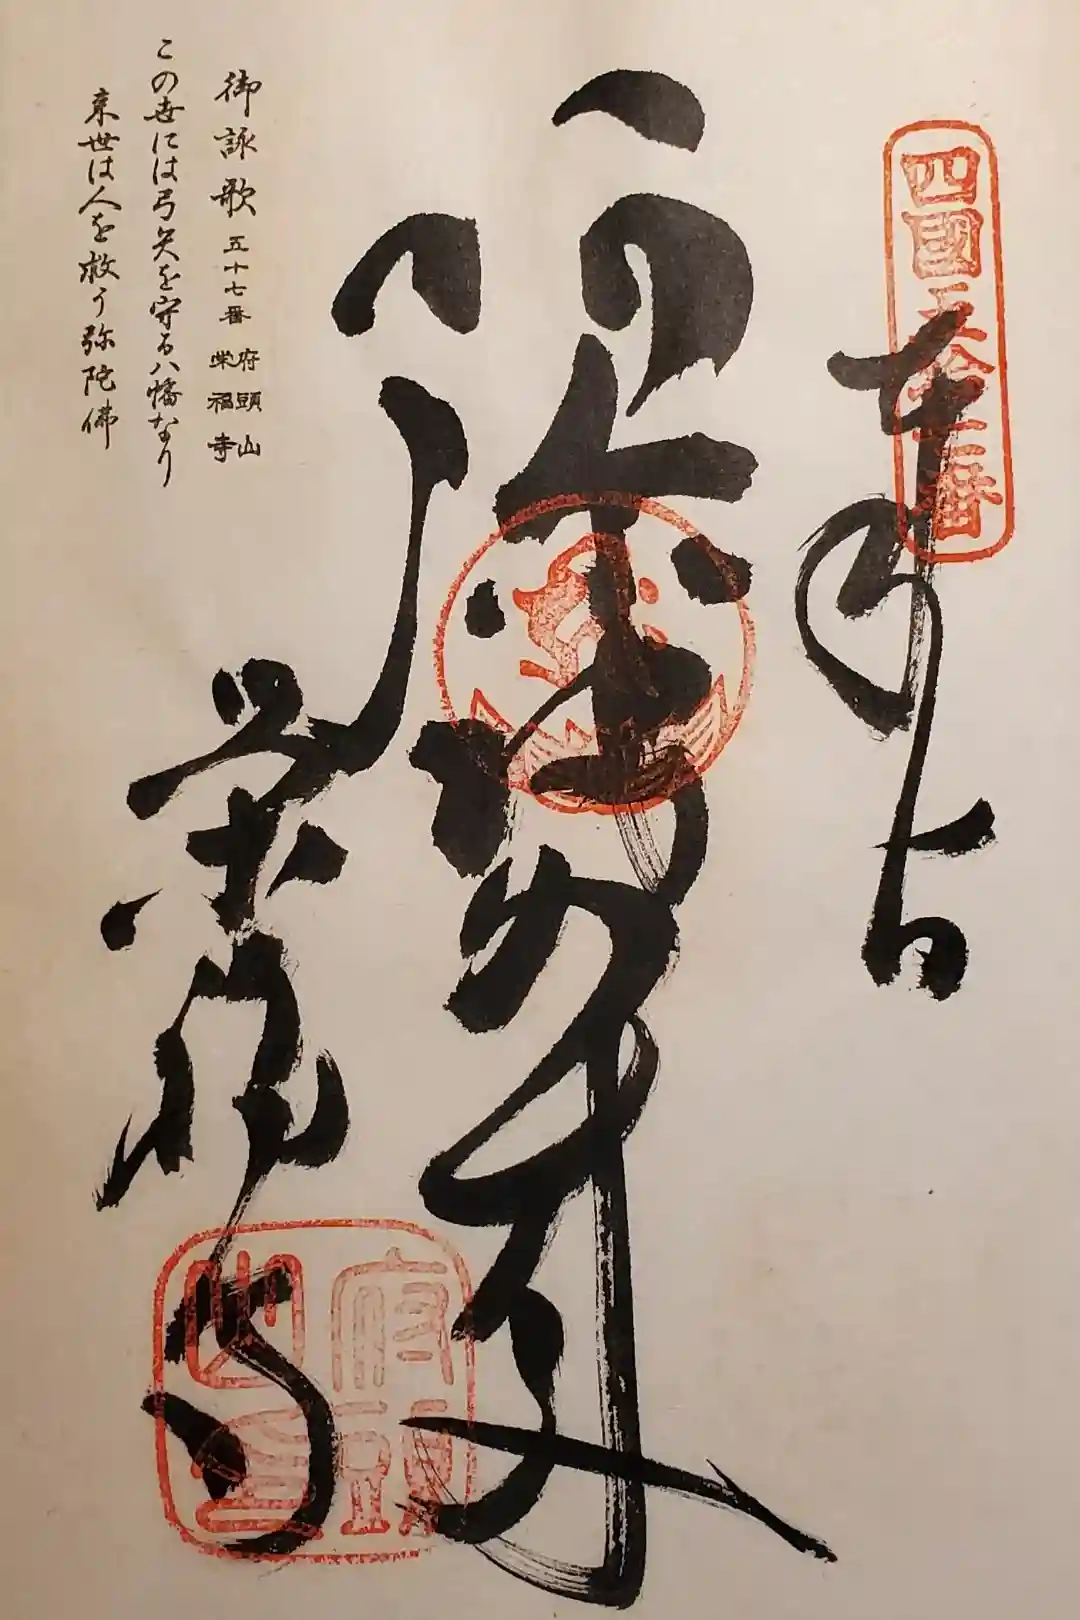 四國五拾七番
奉納
阿弥陀如来
栄福寺
府頭山
御詠歌 五十七番 府頭山 栄福寺
この世には弓矢を守る八幡なり
来世は人を救う弥陀佛